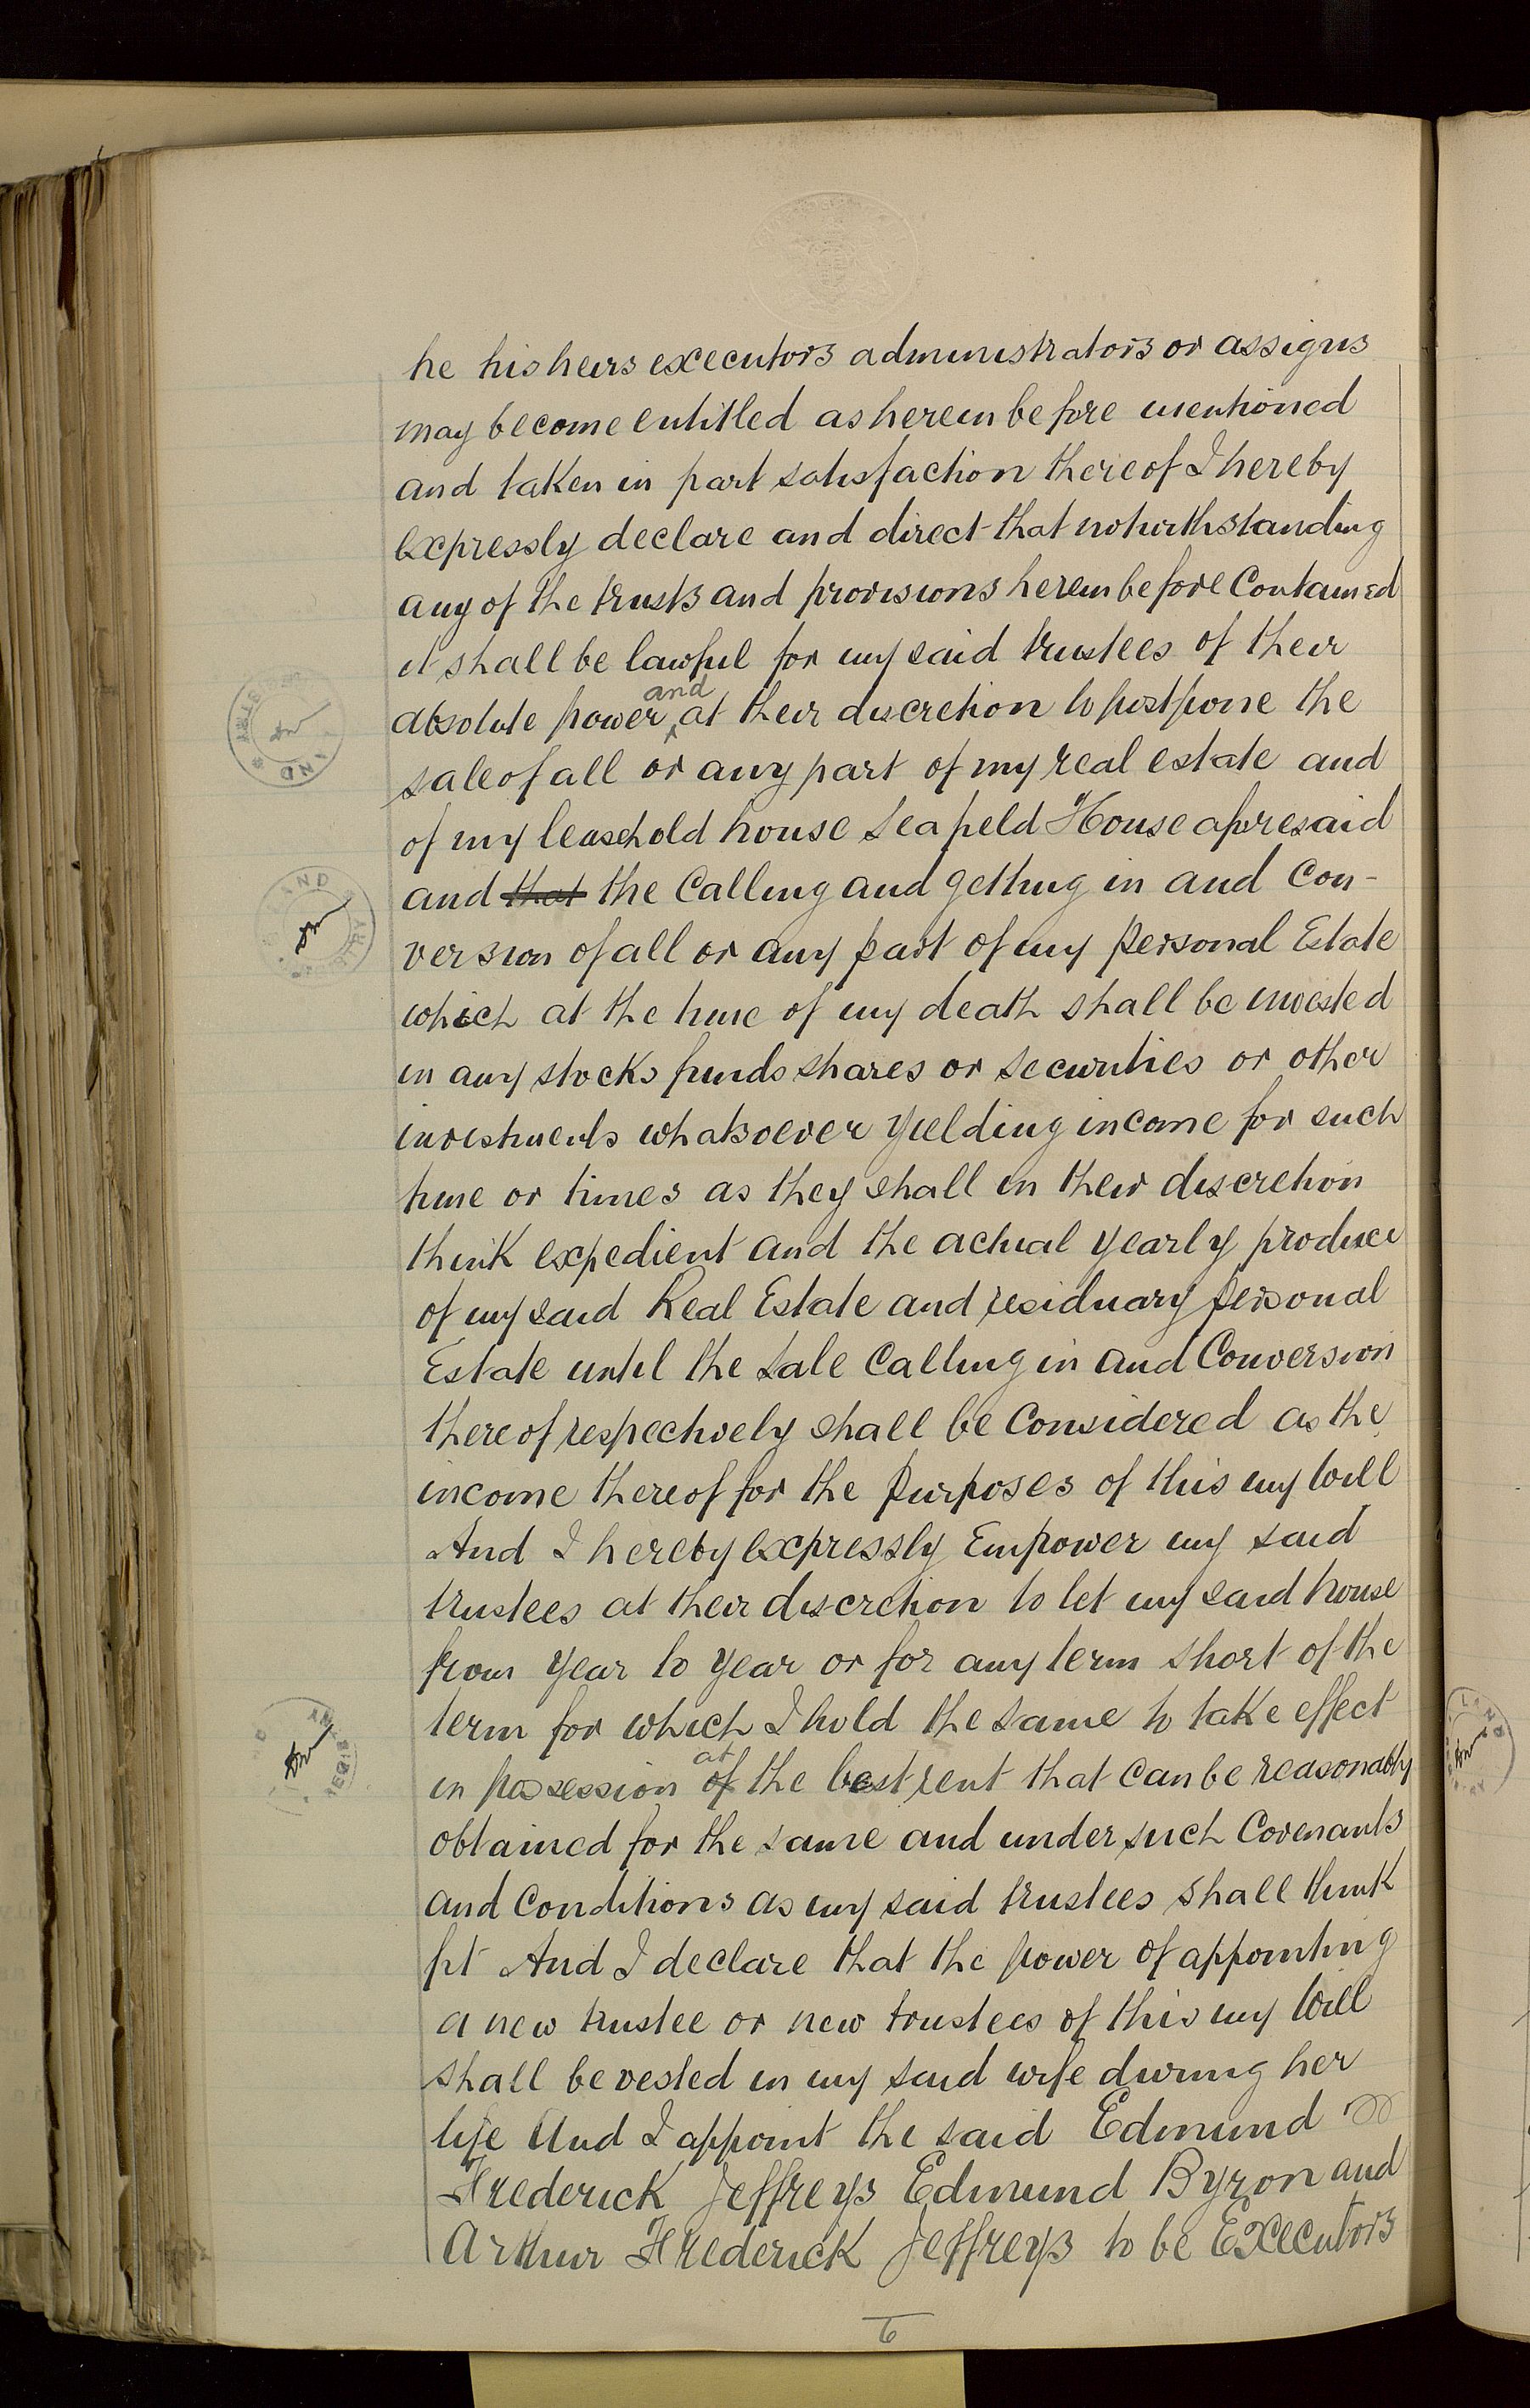 he his heirs executors administrators or assigns
may become entitled as hereinbefore mentioned
and taken in part satisfaction thereof I hereby
expressly declare and direct that notwithstanding
any of the trusts and provisions hereinbefore Contained
it shall be lawful for my said trustees of their
absolute power and at their discretion to postpone the
sale of all or any part of my real estate and
of my leasehold house Seafield House aforesaid
and that the Calling and getting in and Con-
version of all or any part of my personal Estate
which at the time of my death shall be invested
in any stocks funds shares or securities or other
investments whatsoever yielding income for such
time or times as they shall in their discretion
think expedient and the actual yearly produce
of my said Real Estate and residuary personal
Estate until the Sale Calling in and Conversion
thereof respectively shall be Considered as the
income thereof for the purposes of this my Will
And I hereby expressly Empower my said
trustees at their discretion to let my said house
from year to year or for any term short of the
term for which I hold the same to take effect
in possession of at the best rent that can be reasonably
obtained for the same and under such Covenants
and Conditions as my said trustees shall think
fit And I declare that the power of appointing
a new trustee or new trustees of this my Will
shall be vested in my said wife during her
life And I appoint the said Edmund
Frederick Jeffreys Edmund Byron and
Arthur Frederick Jeffreys to be Executors
6